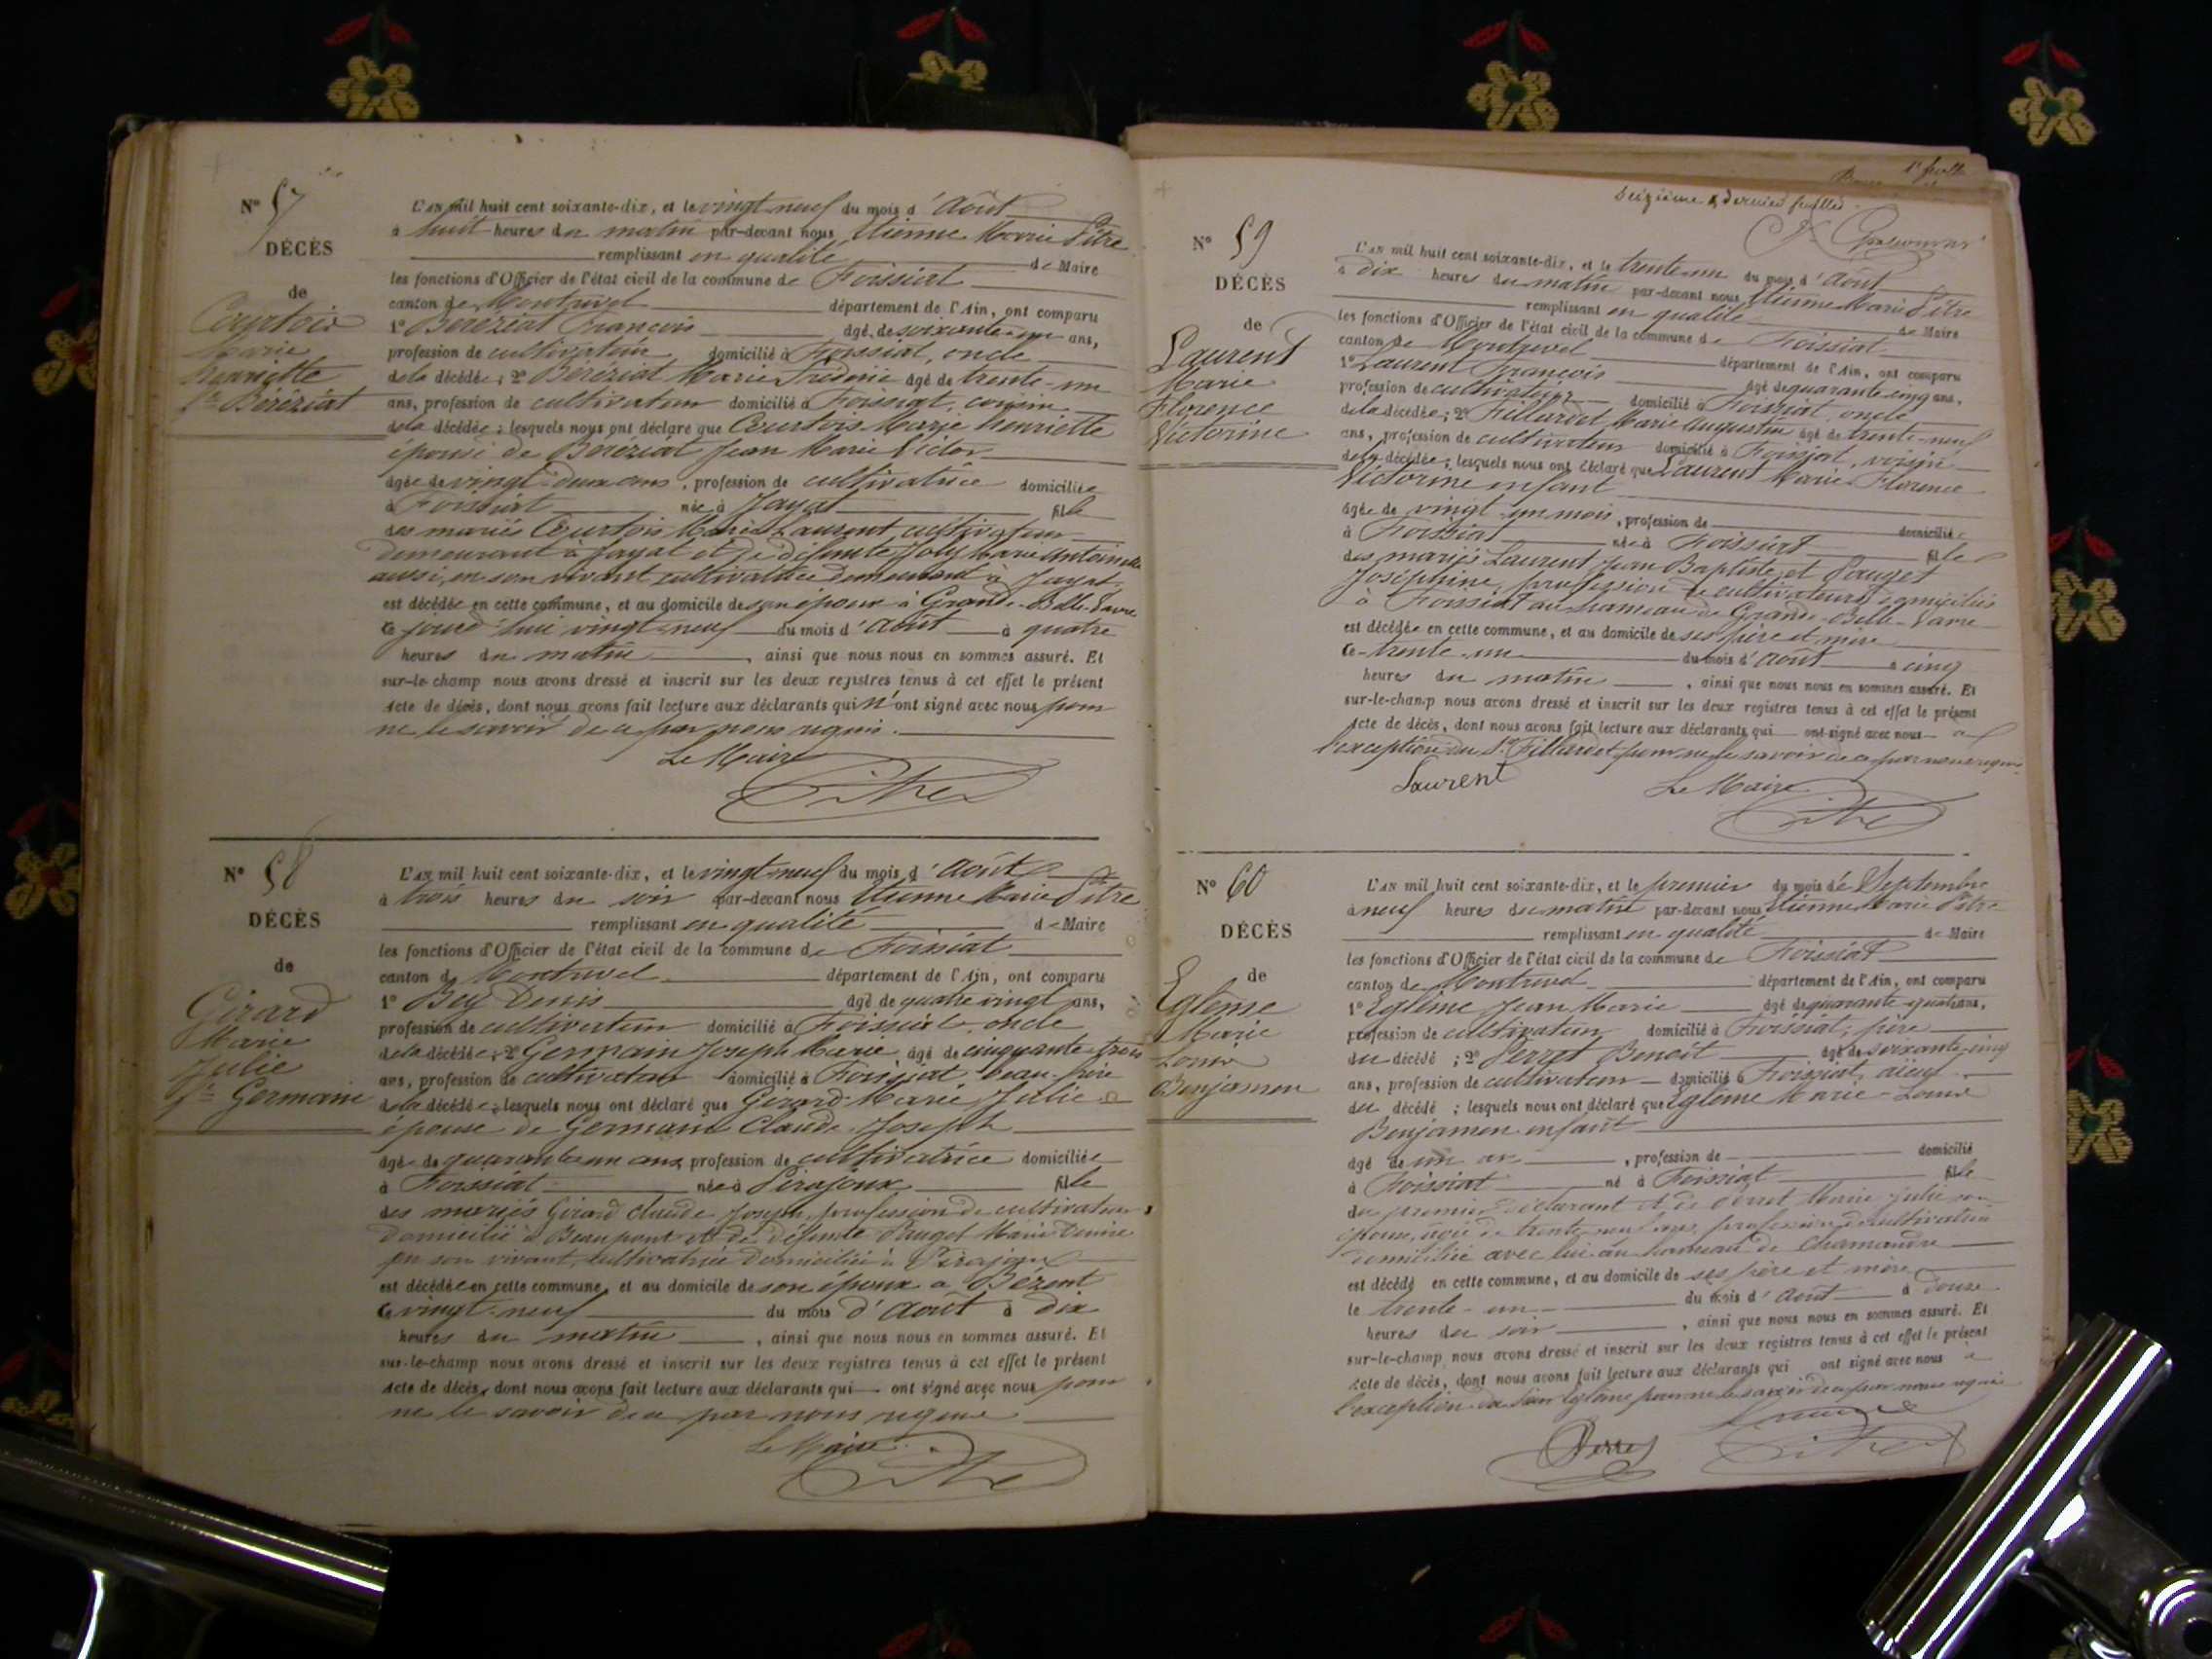 N° 57
DÉCÈS
de
Courtois
Marie
henriette
fe Beréziat
L'AN mil huit cent soixante-dix, et le vingt-neuf du mois d'Août
à huit heures du matin par-devant nous Etienne Marie Pitre
remplissant en qualité de Maire
les fonctions d'Officier de l'état civil de la commune de Foissiat
canton de Montrevel département de l'Ain, ont comparu
1° Beréziat François âgé de soixante-un ans,
profession de cultivateur domicilié à Foissiat, oncle
de la décédée ; 2° Beréziat Marie Frédéric âgé de trente-un
ans, profession de cultivateur domicilié à Foissiat, cousin
de la décédée ; lesquels nous ont déclaré que Courtois Marie henriette
épouse de Beréziat Jean Marie Victor
âgée de vingt-deux ans, profession de cultivatrice domiciliée
à Foissiat née à Jayat fille
des mariés Courtois Marie Laurent cultivateur
demeurant à Jayat et de défunte Joly Marie Antoinette
aussi, en son vivant cultivatrice demeurant à Jayat
est décédée en cette commune, et au domicile de son époux à Grande-Belle-Vavre
ce jourd'hui vingt-neuf du mois d'Août à quatre
heures du matin, ainsi que nous nous en sommes assuré. Et
sur-le-champ nous avons dressé et inscrit sur les deux registres tenus à cet effet le présent
acte de décès, dont nous avons fait lecture aux déclarants qui n'ont signé avec nous pour
ne le savoir de ce par nous requis.
Le Maire
Pitre
N° 58
DÉCÈS
de
Girard
Marie
Julie
fe Germain
L'AN mil huit cent soixante-dix, et le vingt-neuf du mois d'Août
à trois heures du soir par-devant nous Etienne Marie Pitre
remplissant en qualité de Maire
les fonctions d'Officier de l'état civil de la commune de Foissiat
canton de Montrevel département de l'Ain, ont comparu
1° Bey Denis âgé de quatre vingt ans,
profession de cultivateur domicilié à Foissiat, oncle
de la décédée ; 2° Germain Joseph Marie, âgé de cinquante-trois
ans, profession de cultivateur domicilié à Foissiat beau-père
de la décédée ; lesquels nous ont déclaré que Girard Marie Julie
épouse de Germain Claude Joseph
âgée de quarante un ans, profession de cultivatrice domiciliée
à Foissiat née à Pirajoux fille
des mariés Girard Claude Joseph, profession de cultivateur
domicilié à Beaupont et de défunte Pauget Marie Denise
en son vivant, cultivatrice domiciliée à Pirajoux
est décédée en cette commune, et au domicile de son époux à Bézent
ce vingt-neuf du mois d'Août à dix
heures du matin, ainsi que nous nous en sommes assuré. Et
sur-le-champ nous avons dressé et inscrit sur les deux registres tenus à cet effet le présent
acte de décès, dont nous avons fait lecture aux déclarants qui ont signé avec nous pour
ne le savoir de ce par nous requis
Le Maire
Pitre
Seizième & dernier feuillet
N° 59
DÉCÈS
de
Laurent
Marie
Florence
Victorine
L'AN mil huit cent soixante-dix, et le trente-un du mois d'Août
à dix heures du matin par-devant nous Etienne Marie Pitre
remplissant en qualité de Maire
les fonctions d'Officier de l'état civil de la commune de Foissiat
canton de Montrevel département de l'Ain, ont comparu
1° Laurent François âgé de quarante cinq ans,
profession de cultivateur domicilié à Foissiat oncle
de la décédée ; 2° Fillardet Marie Augustin âgé de trente-neuf
ans, profession de cultivateur domicilié à Foissiat, voisin
de la décédée ; lesquels nous ont déclaré que Laurent Marie Florence
Victorine enfant
âgée de vingt-un mois, profession de domiciliée
à Foissiat née à Foissiat fille
des mariés Laurent Jean Baptiste et Pauget
Joséphine, profession de cultivateurs domiciliés
à Foissiat au hameau de Grande-Belle-Vavre
est décédée en cette commune, et au domicile de ses père et mère
ce trente-un du mois d'Août à cinq
heures du matin, ainsi que nous nous en sommes assuré. Et
sur-le-champ nous avons dressé et inscrit sur les deux registres tenus à cet effet le présent
acte de décès, dont nous avons fait lecture aux déclarants qui ont signé avec nous à
l'exception du Sr Fillardet pour ne le savoir de ce par nous requis
Laurent Le Maire
Pitre
N° 60
DÉCÈS
de
Eglème
Marie
Louis
Benjamen
L'AN mil huit cent soixante-dix, et le premier du mois de Septembre
à neuf heures du matin par-devant nous Etienne Marie Pitre
remplissant en qualité de Maire
les fonctions d'Officier de l'état civil de la commune de Foissiat
canton de Montrevel département de l'Ain, ont comparu
1° Eglème Jean Marie âgé de quarante-quatre ans,
profession de cultivateur domicilié à Foissiat, père
du décédé ; 2° Perret Benoît âgé de soixante-cinq
ans, profession de cultivateur domicilié à Foissiat, aïeul
du décédé ; lesquels nous ont déclaré que Eglème Marie-Louis
Benjamen enfant
âgé de un an, profession de domicilié
à Foissiat né à Foissiat fils
du premier déclarant et de Perret Marie Julie son
épouse, âgée de trente-neuf ans, profession de cultivatrice
domiciliée avec lui au hameau de Chamandre
est décédé en cette commune, et au domicile de ses père et mère
le trente-un du mois d'Août à douze
heures du soir, ainsi que nous nous en sommes assuré. Et
sur-le-champ nous avons dressé et inscrit sur les deux registres tenus à cet effet le présent
acte de décès, dont nous avons fait lecture aux déclarants qui ont signé avec nous à
l'exception du Sieur Eglème pour ne le savoir de ce par nous requis
Le Maire
Perret Pitre